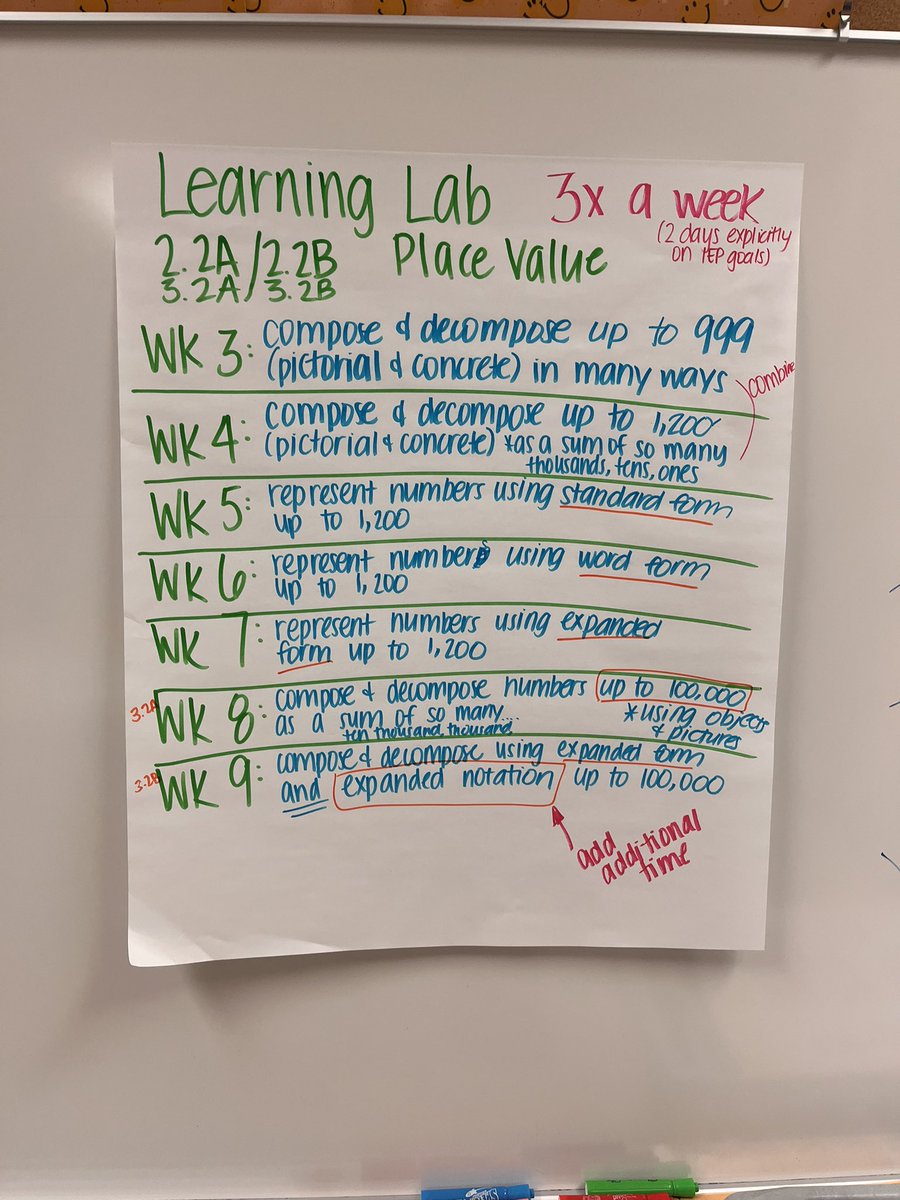 Learning Lab 3x a week
(2 days explicitly
on IEP goals)
2.2A/2.2B Place Value
3.2A/3.2B
WK 3: compose & decompose up to 999
(pictorial & concrete) in many ways
combine
WK 4: compose & decompose up to 1,200
(pictorial & concrete) *as a sum of so many
thousands, tens, ones
WK 5: represent numbers using standard form
up to 1,200
WK 6: represent numbers using word form
up to 1,200
WK 7: represent numbers using expanded
form up to 1,200
3.2A WK 8: compose & decompose numbers up to 100,000
as a sum of so many... *using objects
ten thousand, thousand & pictures
3.2B WK 9: compose & decompose using expanded form
and expanded notation up to 100,000
add
additional
time